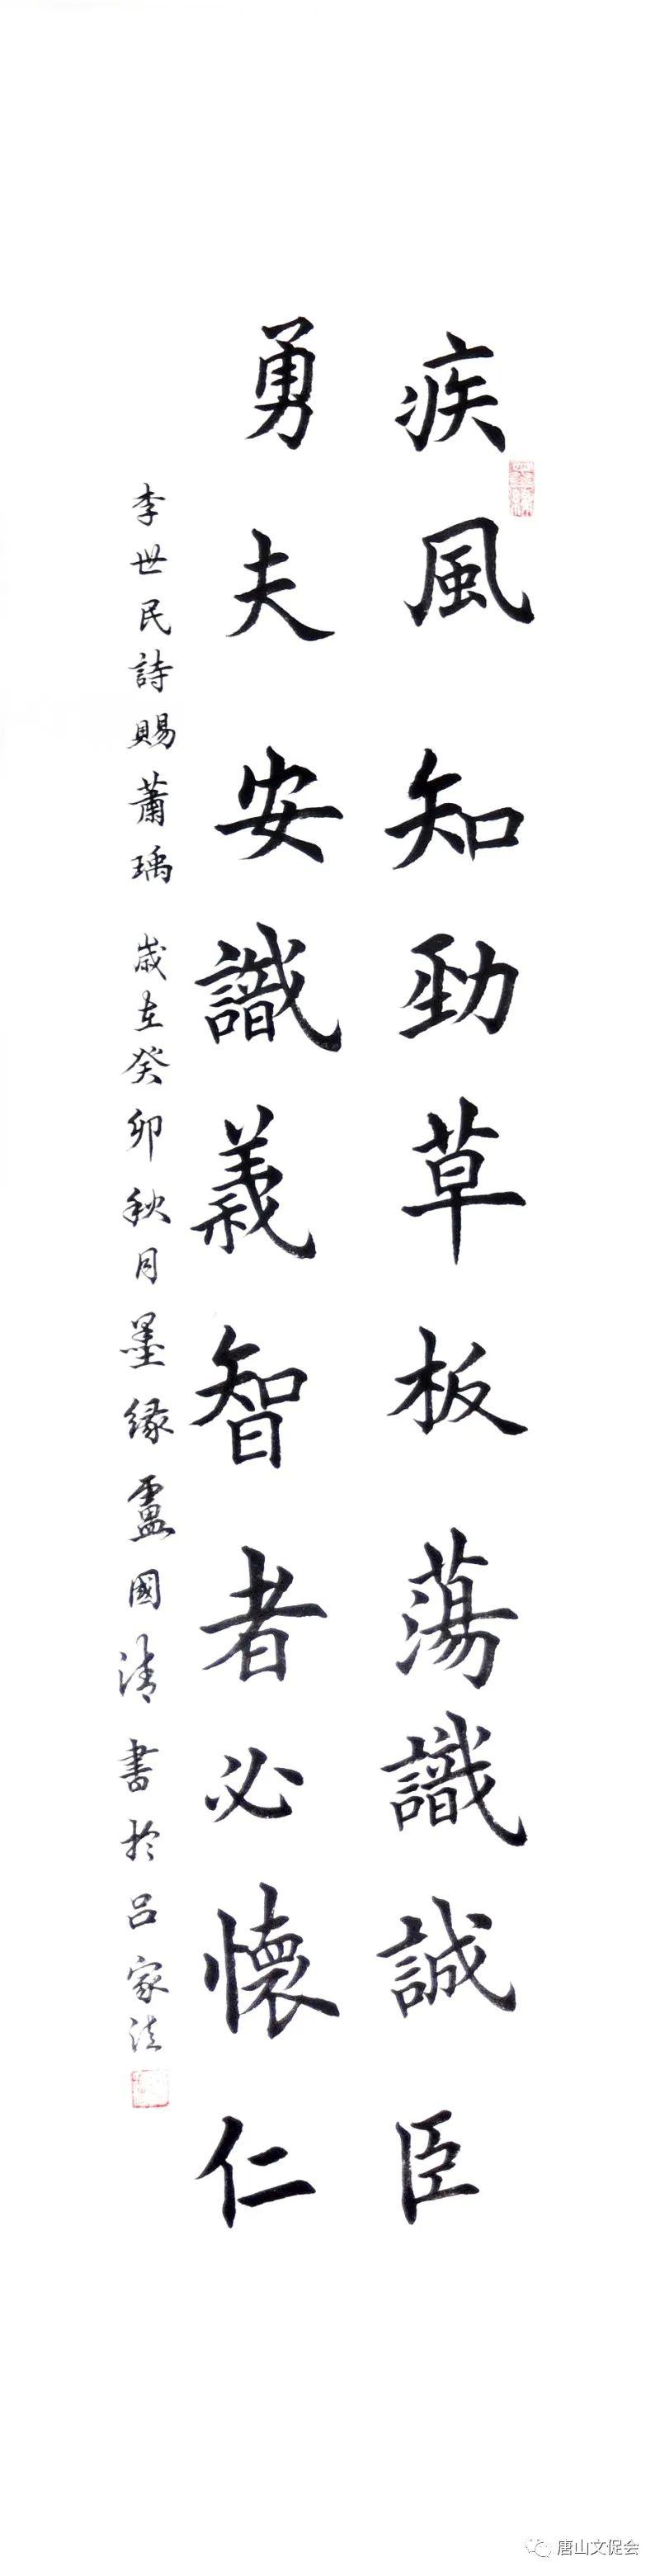 疾風知勁草板蕩識誠臣
勇夫安識義智者必懷仁
李世民詩賜蕭瑀 歲在癸卯秋月墨緣盧國清書於呂家洼
唐山文促会